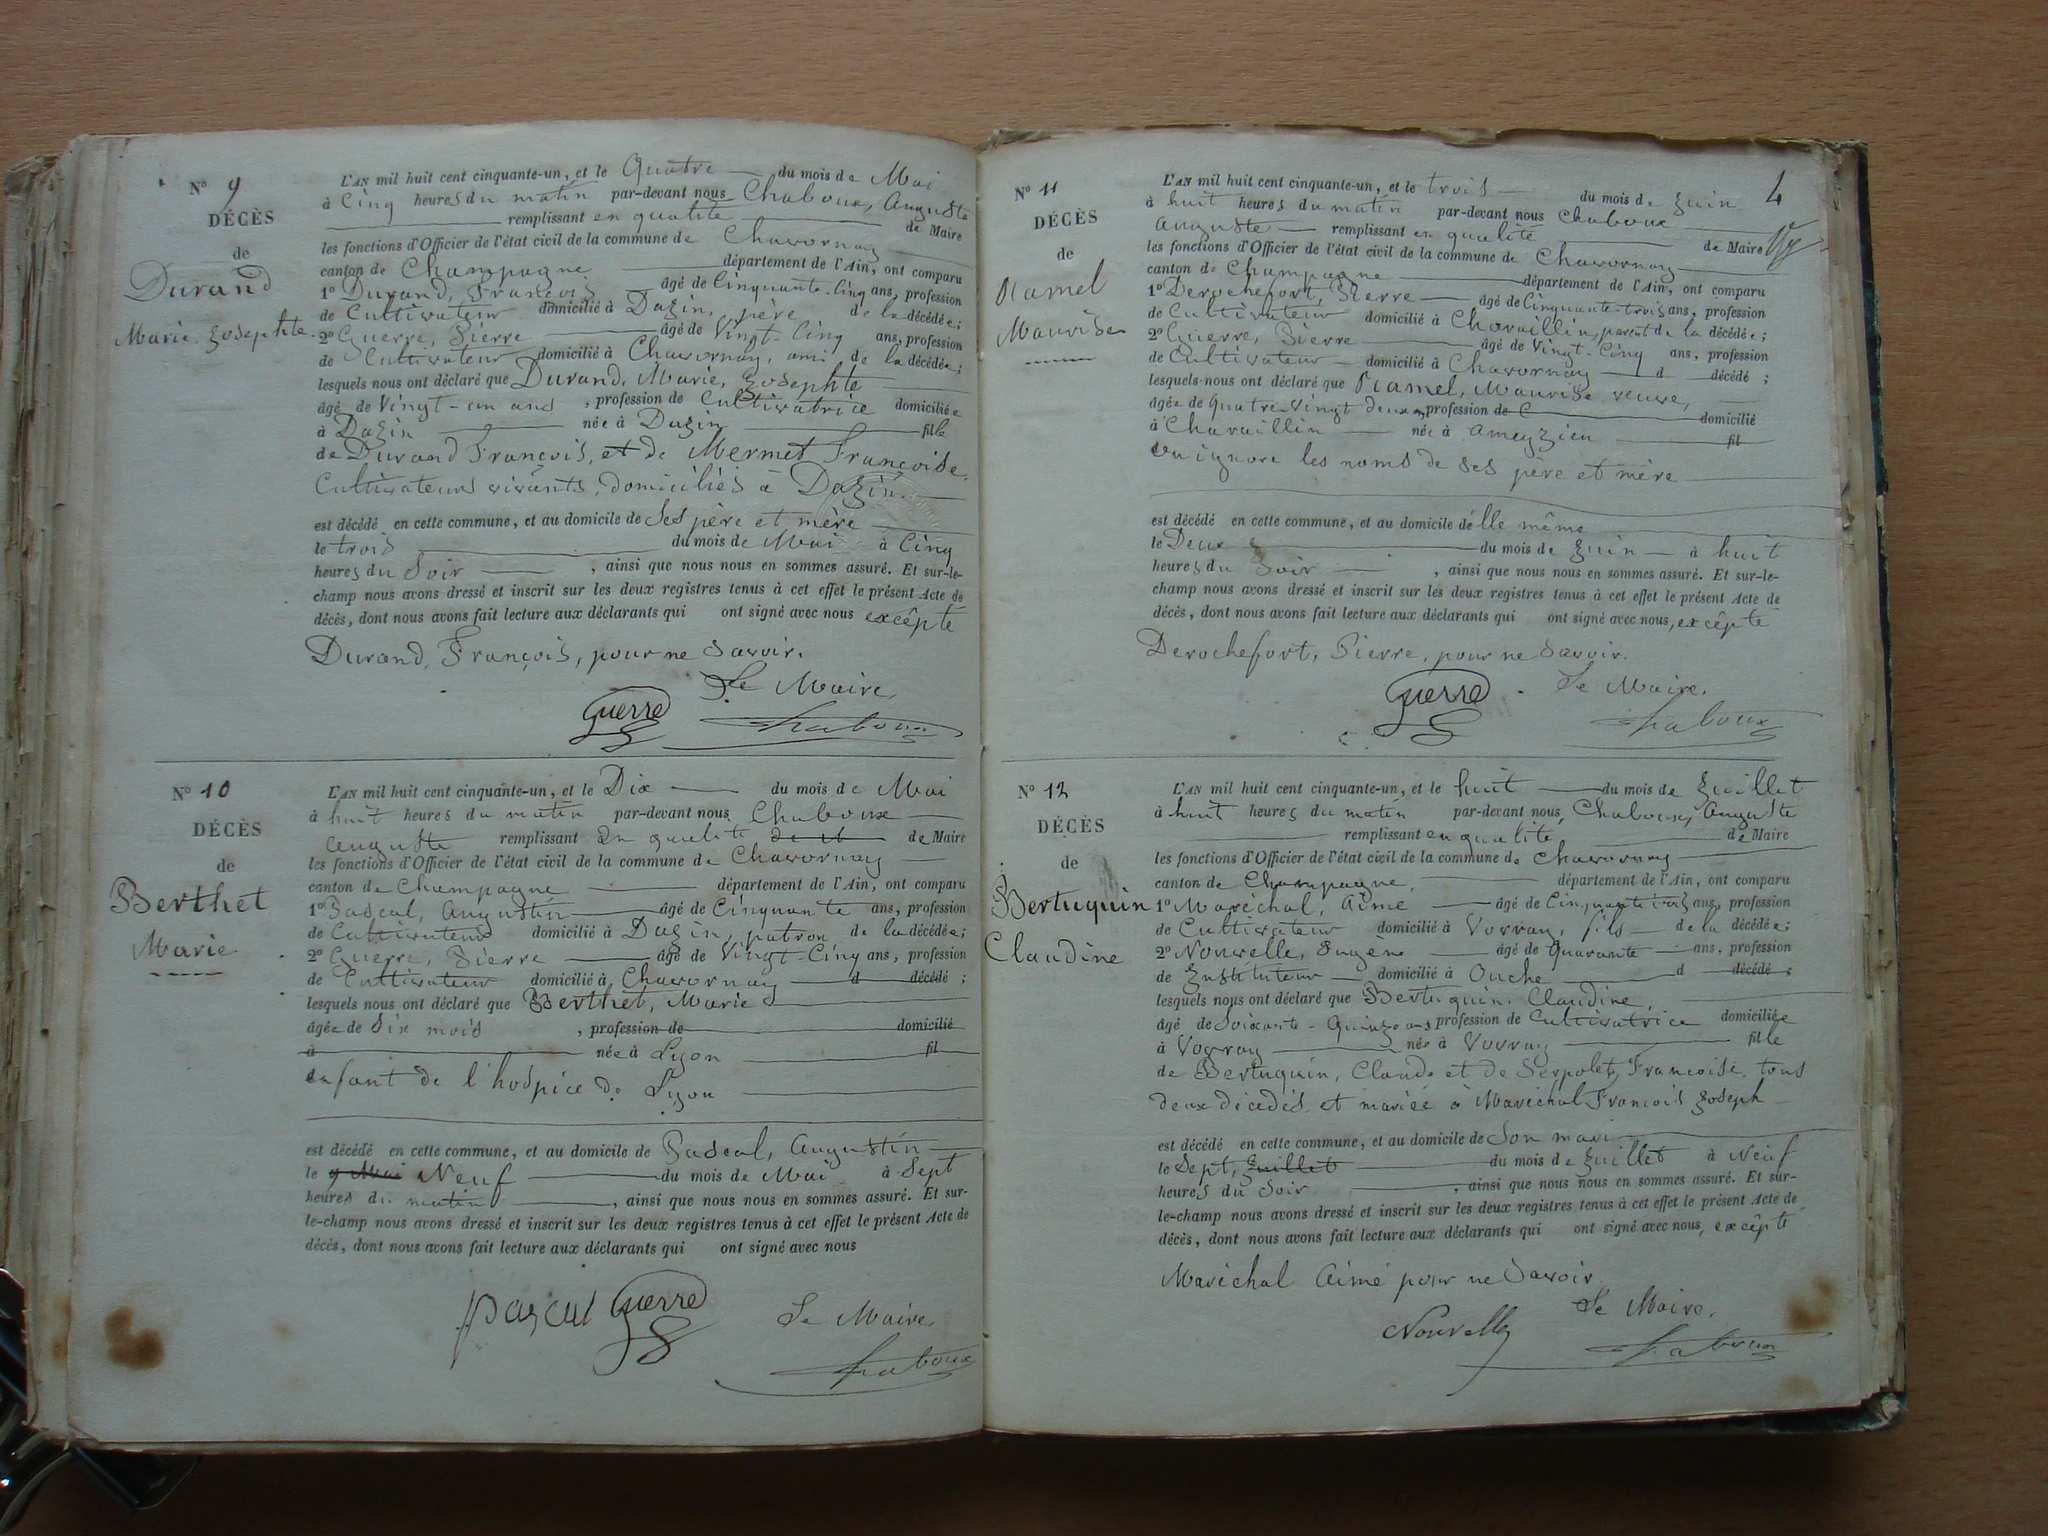 N° 9
DÉCÈS
de
Durand
Marie Josephte
L'AN mil huit cent cinquante-un, et le Quatre du mois de Mai
à Cinq heures du matin par-devant nous Chaboux, Auguste
remplissant en qualité de Maire
les fonctions d'Officier de l'état civil de la commune de Chavornay
canton de Champagne département de l'Ain, ont comparu
1° Durand, François âgé de Cinquante-Cinq ans, profession
de Cultivateur domicilié à Dazin, père de la décédée;
2° Guerre, Pierre âgé de Vingt-Cinq ans, profession
de Cultivateur domicilié à Chavornay, ami de la décédée;
lesquels nous ont déclaré que Durand, Marie, Josephte
âgé de Vingt-un ans, profession de Cultivatrice domiciliée
à Dazin née à Dazin fille
de Durand François, et de Mermet Françoise,
Cultivateurs vivants, domiciliés à Dazin.
est décédé en cette commune, et au domicile de Ses père et mère
le trois du mois de Mai à Cinq
heures du Soir, ainsi que nous nous en sommes assuré. Et sur-le-
champ nous avons dressé et inscrit sur les deux registres tenus à cet effet le présent Acte de
décès, dont nous avons fait lecture aux déclarants qui ont signé avec nous excêpté
Durand, François, pour ne Savoir.
Le Maire,
Guerre Chaboux
N° 10
DÉCÈS
de
Berthet
Marie
L'AN mil huit cent cinquante-un, et le Dix du mois de Mai
à huit heures du matin par-devant nous Chaboux
Auguste remplissant En qualité de Maire
les fonctions d'Officier de l'état civil de la commune de Chavornay
canton de Champagne département de l'Ain, ont comparu
1° Pascal, Augustin âgé de Cinquante ans, profession
de Cultivateur domicilié à Dazin, patron de la décédée;
2° Guerre, Pierre âgé de Vingt-Cinq ans, profession
de Cultivateur domicilié à Chavornay d décédé;
lesquels nous ont déclaré que Berthet, Marie
âgée de Six mois, profession de domicilié
à née à Lyon fil
enfant de l'hospice de Lyon
est décédé en cette commune, et au domicile de Pascal, Augustin
le 9 Mai Neuf du mois de Mai à Sept
heures du matin, ainsi que nous nous en sommes assuré. Et sur-
le-champ nous avons dressé et inscrit sur les deux registres tenus à cet effet le présent Acte de
décès, dont nous avons fait lecture aux déclarants qui ont signé avec nous
pascal Guerre Le Maire,
Chaboux
4
N° 11
DÉCÈS
de
Ramel
Maurise
L'AN mil huit cent cinquante-un, et le trois du mois de Juin
à huit heures du matin par-devant nous Chaboux
Auguste remplissant en qualité de Maire
les fonctions d'Officier de l'état civil de la commune de Chavornay
canton de Champagne département de l'Ain, ont comparu
1° Derochefort, Pierre âgé de Cinquante-trois ans, profession
de Cultivateur domicilié à Chavaillin, parent de la décédée;
2° Guerre, Pierre âgé de Vingt-Cinq ans, profession
de Cultivateur domicilié à Chavornay d décédé;
lesquels nous ont déclaré que Ramel, Maurise veuve,
âgée de Quatre-Vingt deux profession de domicilié
à Chavaillin née à Ameyzieu fil
On ignore les noms de ses père et mère
est décédé en cette commune, et au domicile d'elle même
le Deux du mois de Juin à huit
heures du Soir, ainsi que nous nous en sommes assuré. Et sur-le-
champ nous avons dressé et inscrit sur les deux registres tenus à cet effet le présent Acte de
décès, dont nous avons fait lecture aux déclarants qui ont signé avec nous, excêpté
Derochefort, Pierre, pour ne Savoir.
Guerre Le Maire.
Chaboux
N° 12
DÉCÈS
de
Bertuquin
Claudine
L'AN mil huit cent cinquante-un, et le huit du mois de Juillet
à huit heures du matin par-devant nous Chaboux, Auguste
remplissant en qualité de Maire
les fonctions d'Officier de l'état civil de la commune de Chavornay
canton de Champagne, département de l'Ain, ont comparu
1° Maréchal, Aimé âgé de Cinquante trois ans, profession
de Cultivateur domicilié à Vovray, fils de la décédée;
2° Nouvelle, Eugène âgé de Quarante ans, profession
de Instituteur domicilié à Ouche d décédé;
lesquels nous ont déclaré que Bertuquin, Claudine,
âgé de Soixante-Quinze ans profession de Cultivatrice domiciliée
à Vovray née à Vovray fille
de Bertuquin, Claude et de Serpolet, Francoise, tous
deux décédés et mariée à Maréchal Francois Joseph
est décédé en cette commune, et au domicile de Son mari
le Sept, Juillet du mois de Juillet à Neuf
heures du Soir, ainsi que nous nous en sommes assuré. Et sur-
le-champ nous avons dressé et inscrit sur les deux registres tenus à cet effet le présent Acte de
décès, dont nous avons fait lecture aux déclarants qui ont signé avec nous, excêpté
Maréchal Aimé pour ne Savoir
Le Maire.
Nouvelle Chaboux